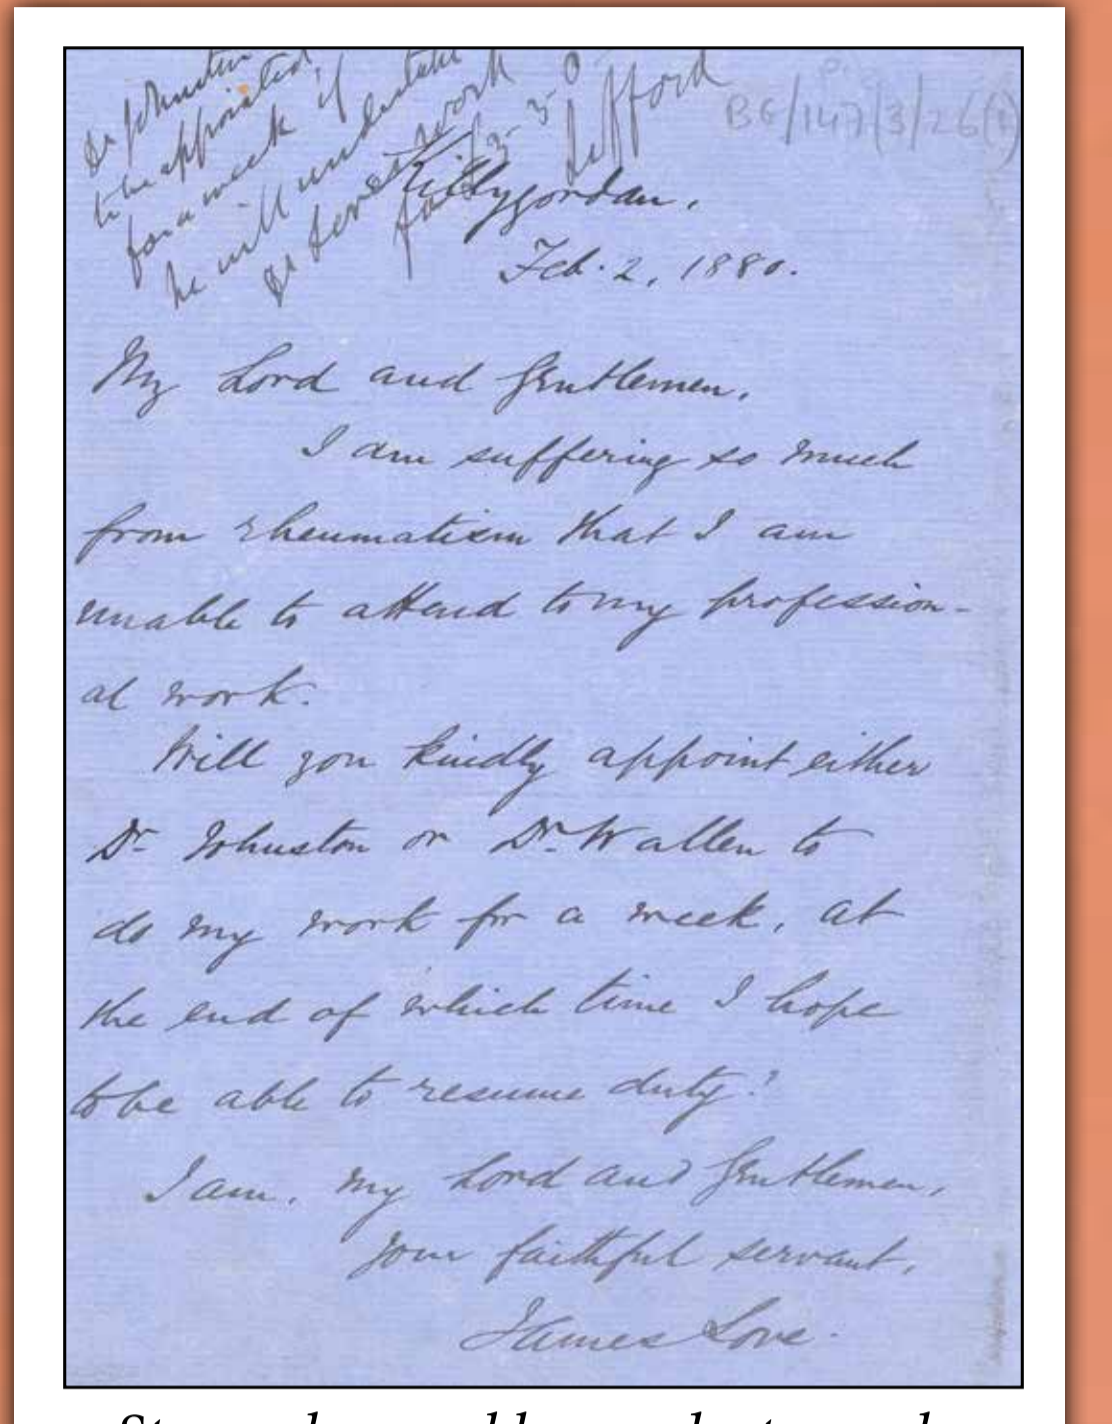 Dr Johnston
to be appointed
for a week if
he will undertake
Dr Love's work
for £3-3-0
Lifford
BG/147/3/26(1)
Killygordan.
Feb. 2, 1880.
My Lord and Gentlemen,
I am suffering so much
from rheumatism that I am
unable to attend to my profession-
al work.
Will you kindly appoint either
Dr Johnston or Dr. Wallen to
do my work for a week, at
the end of which time I hope
to be able to resume duty?
I am, my Lord and Gentlemen,
your faithful servant,
James Love.